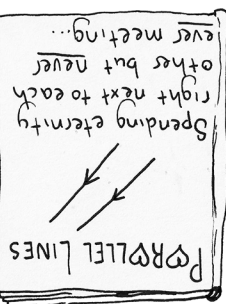 PARALLEL LINES
Spending eternity
right next to each
other but never
ever meeting...